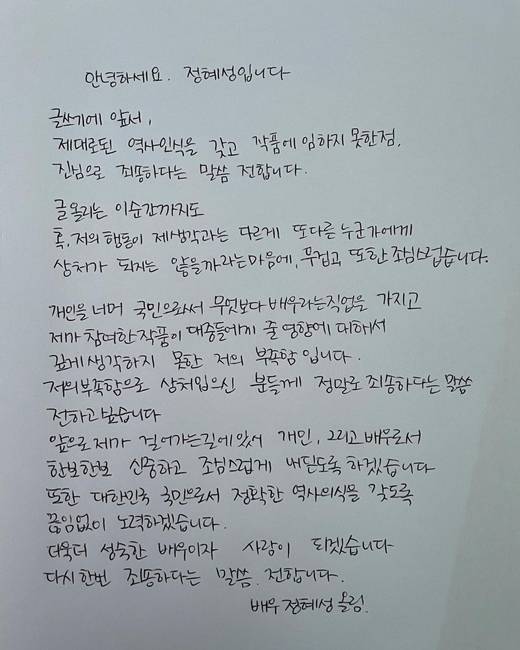 안녕하세요. 정혜성입니다
글쓰기에 앞서,
제대로된 역사인식을 갖고 작품에 임하지 못한점,
진심으로 죄송하다는 말씀 전합니다.
글올리는 이순간까지도
혹, 저의 행동이 제생각과는 다르게 또다른 누군가에게
상처가 되지는 않을까라는마음에, 무겁고 또한 조심스럽습니다.
개인을 너머 국민으로써 무엇보다 배우라는직업을 가지고
제가 참여한작품이 대중들에게 줄 영향에 대해서
깊게 생각하지 못한 저의 부족함 입니다.
저의부족함으로 상처입으신 분들께 정말로 죄송하다는 말씀
전하고 싶습니다
앞으로 제가 걸어가는길에있어 개인, 그리고 배우로서
한보한보 신중하고 조심스럽게 내딛도록 하겠습니다
또한 대한민국 국민으로서 정확한 역사의식을 갖도록
끊임없이 노력하겠습니다.
더욱더 성숙한 배우이자 사람이 되겠습니다
다시한번 죄송하다는 말씀. 전합니다.
배우 정혜성 올림.